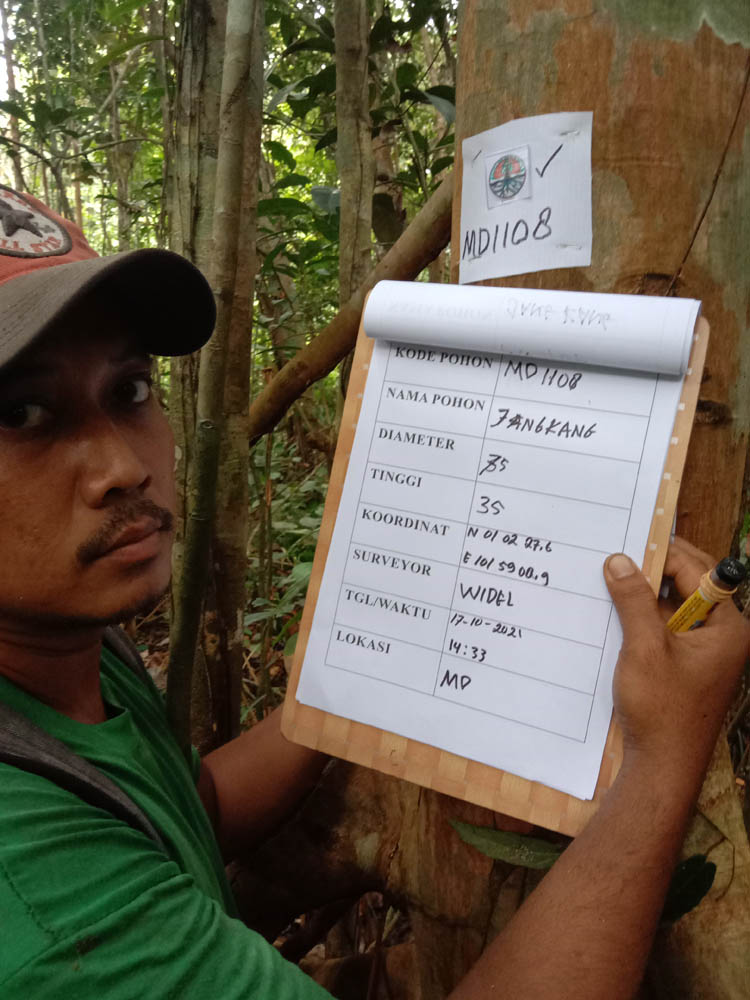 MD1108
KODE POHON MD1108
NAMA POHON JANGKANG
DIAMETER 35
TINGGI 35
KOORDINAT N 01 02 27,6
E 101 59 08,9
SURVEYOR WIDEL
TGL/WAKTU 17-10-2021
14:33
LOKASI MD